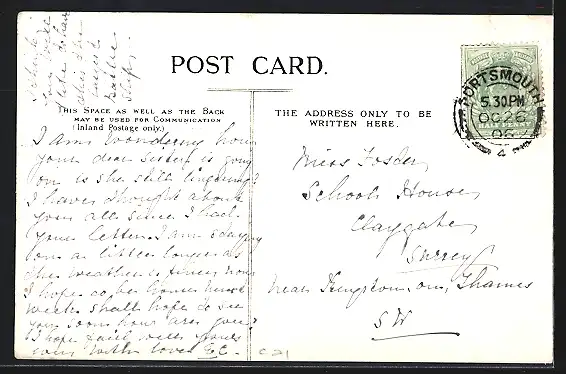 I think
you will
like to have
this the
largest
Battle
Ships
POST CARD.
THIS SPACE AS WELL AS THE BACK
MAY BE USED FOR COMMUNICATION
(Inland Postage only.)
THE ADDRESS ONLY TO BE
WRITTEN HERE.
PORTSMOUTH
5.30PM
OC 26
06
4
I am wondering how
your dear Sister is going
on is she still lingering?
I have thought about
you all since I had
your letter. I am staying
on a little longer as
the weather is finer now
I hope to be home next
week shall hope to see
you soon how are you?
I hope well yours
with love
Miss Foster
School House
Claygate
Surrey
near Kingston on Thames
SW